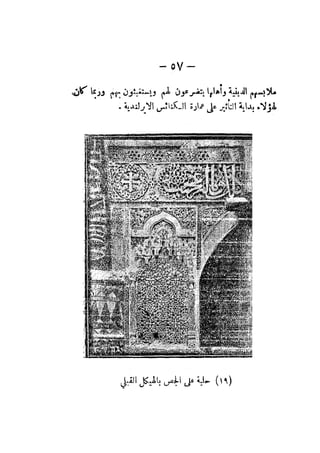 — ٥٧ —
ملابسهم الدينية وأهلها يتضرعون لهم ويستغيثون بهم وربما كان
لهؤلاء بداية التأثير على عمارة الكنائس الايرلندية .
(١٩) حلية على الجص بالهيكل القبلي